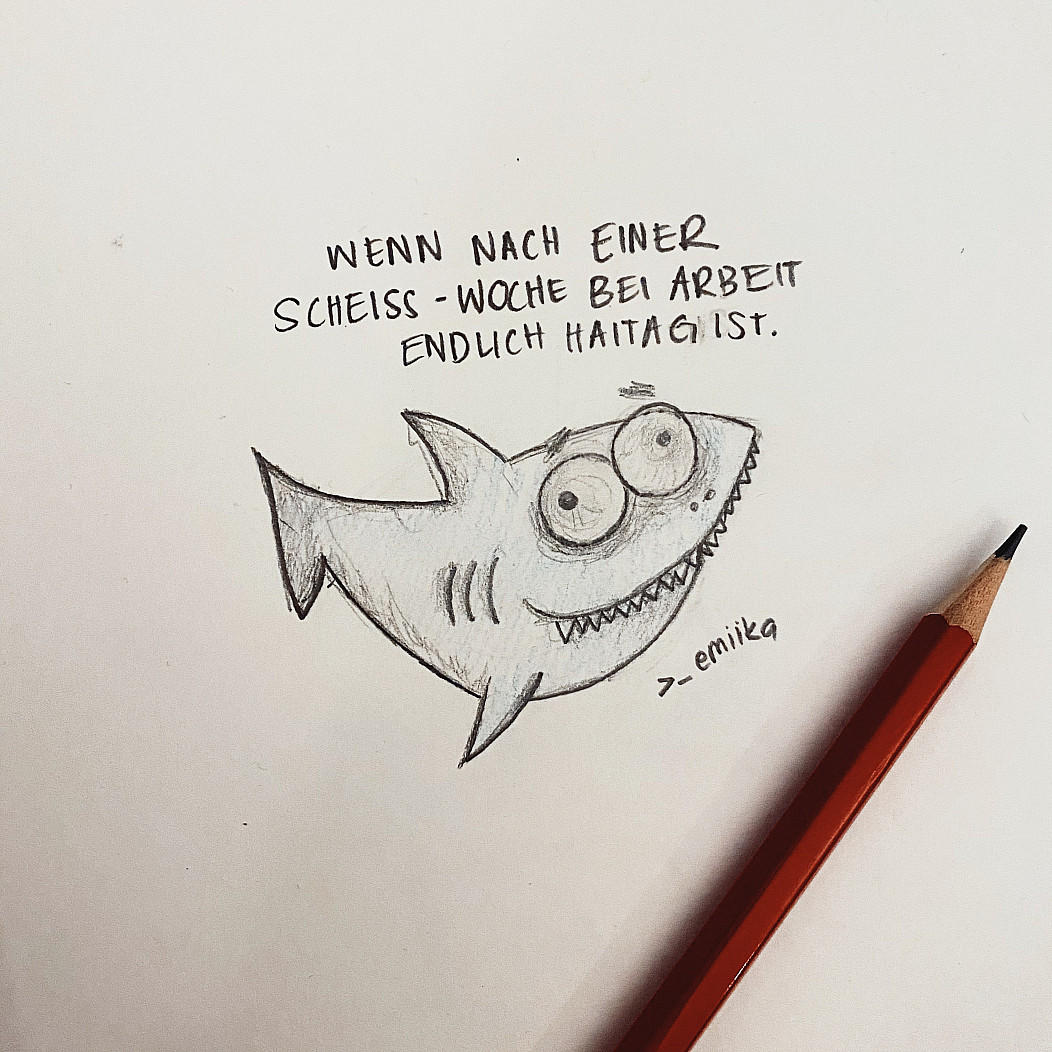 WENN NACH EINER
SCHEISS-WOCHE BEI ARBEIT
ENDLICH HAITAG IST.
>_emiika